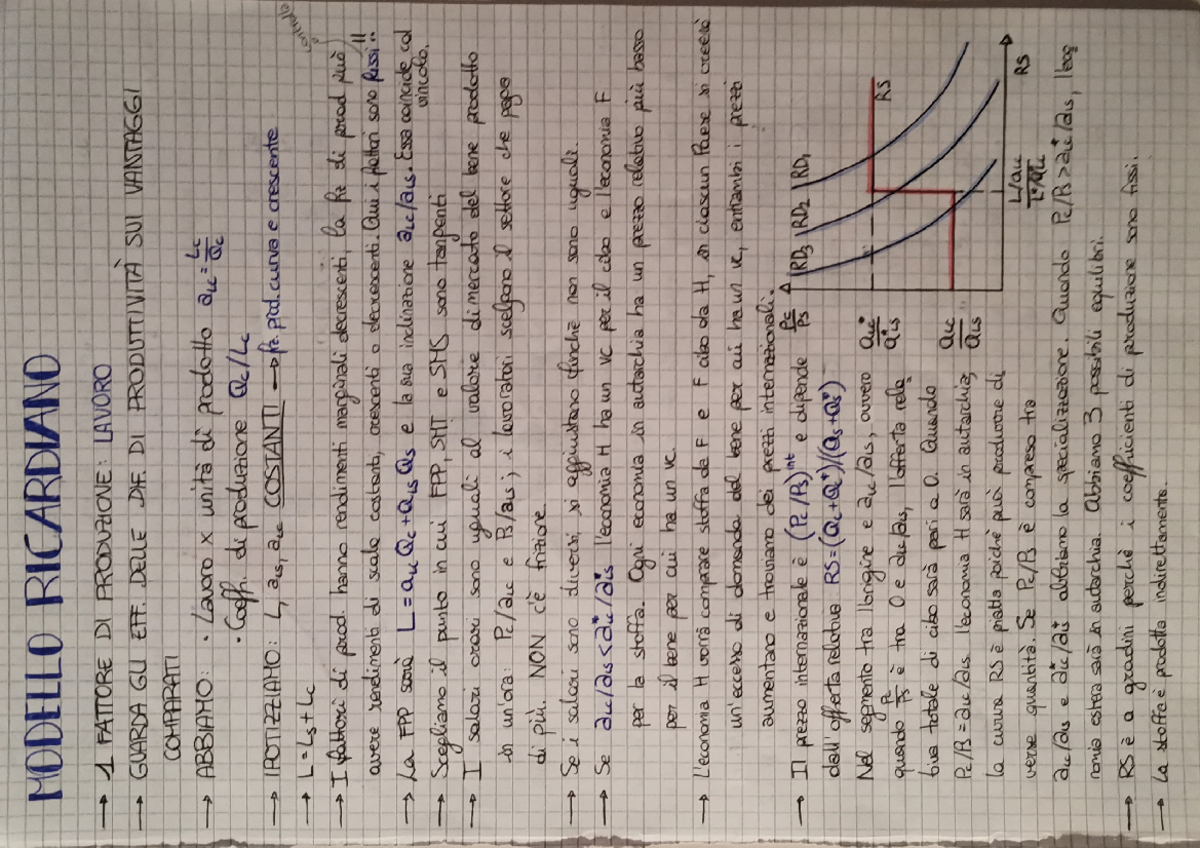 MODELLO RICARDIANO
→ 1 FATTORE DI PRODUZIONE: LAVORO
→ GUARDA GLI EFF. DELLE DIF. DI PRODUTTIVITÀ SUI VANTAGGI
COMPARATI
→ ABBIAMO: · Lavoro x unità di prodotto aLc = Lc/Qc
· Coeff. di produzione Qc/Lc
→ IPOTIZZIAMO: L, aLs, aLc COSTANTI → fz. prod. curva e crescente
→ L = Ls + Lc
→ I fattori di prod. hanno rendimenti marginali decrescenti, la fz di prod può
avere rendimenti di scala costanti, crescenti o decrescenti. Qui i fattori sono fissi!!
→ La FPP sarà L = aLc Qc + aLs Qs e la sua inclinazione aLc/aLs. Essa coincide col
vincolo.
→ Scegliamo il punto in cui FPP, SHT e SMS sono tangenti
→ I salari orari sono uguali al valore di mercato del bene prodotto
in un'ora: Pc/aLc e Ps/aLs; i lavoratori scelgono il settore che paga
di più. NON c'è frizione.
→ Se i salari sono diversi, si aggiustano finchè non sono uguali.
→ Se aLc/aLs < a*Lc/a*Ls l'economia H ha un VC per il cibo e l'economia F
per la stoffa. Ogni economia in autarchia ha un prezzo relativo più basso
per il bene per cui ha un VC.
→ L'economia H vorrà comprare stoffa da F e F cibo da H, in ciascun Paese si creerà
un'eccesso di domanda del bene per cui ha un VC, entrambi i prezzi
aumentano e troviamo dei prezzi internazionali.
→ Il prezzo internazionale è (Pc/Ps)^int e dipende
dall'offerta relativa: RS = (Qc+Qc*)/(Qs+Qs*)
Nel segmento tra l'origine e aLc/aLs, ovvero
quando Pc/Ps è tra 0 e aLc/aLs, l'offerta rela
tiva totale di cibo sarà pari a 0. Quando
Pc/Ps = aLc/aLs l'economia H sarà in autarchia,
la curva RS è piatta poichè può produrre di
verse quantità. Se Pc/Ps è compreso tra
aLc/aLs e a*Lc/a*Ls abbiamo la specializzazione. Quando Pc/Ps > a*Lc/a*Ls, l'eco
nomia estera sarà in autarchia. Abbiamo 3 possibili equilibri.
→ RS è a gradini perchè i coefficienti di produzione sono fissi.
→ La stoffa è prodotta indirettamente.
Pc/Ps
RD3 RD2 RD1
a*Lc/a*Ls
RS
aLc/aLs
RS